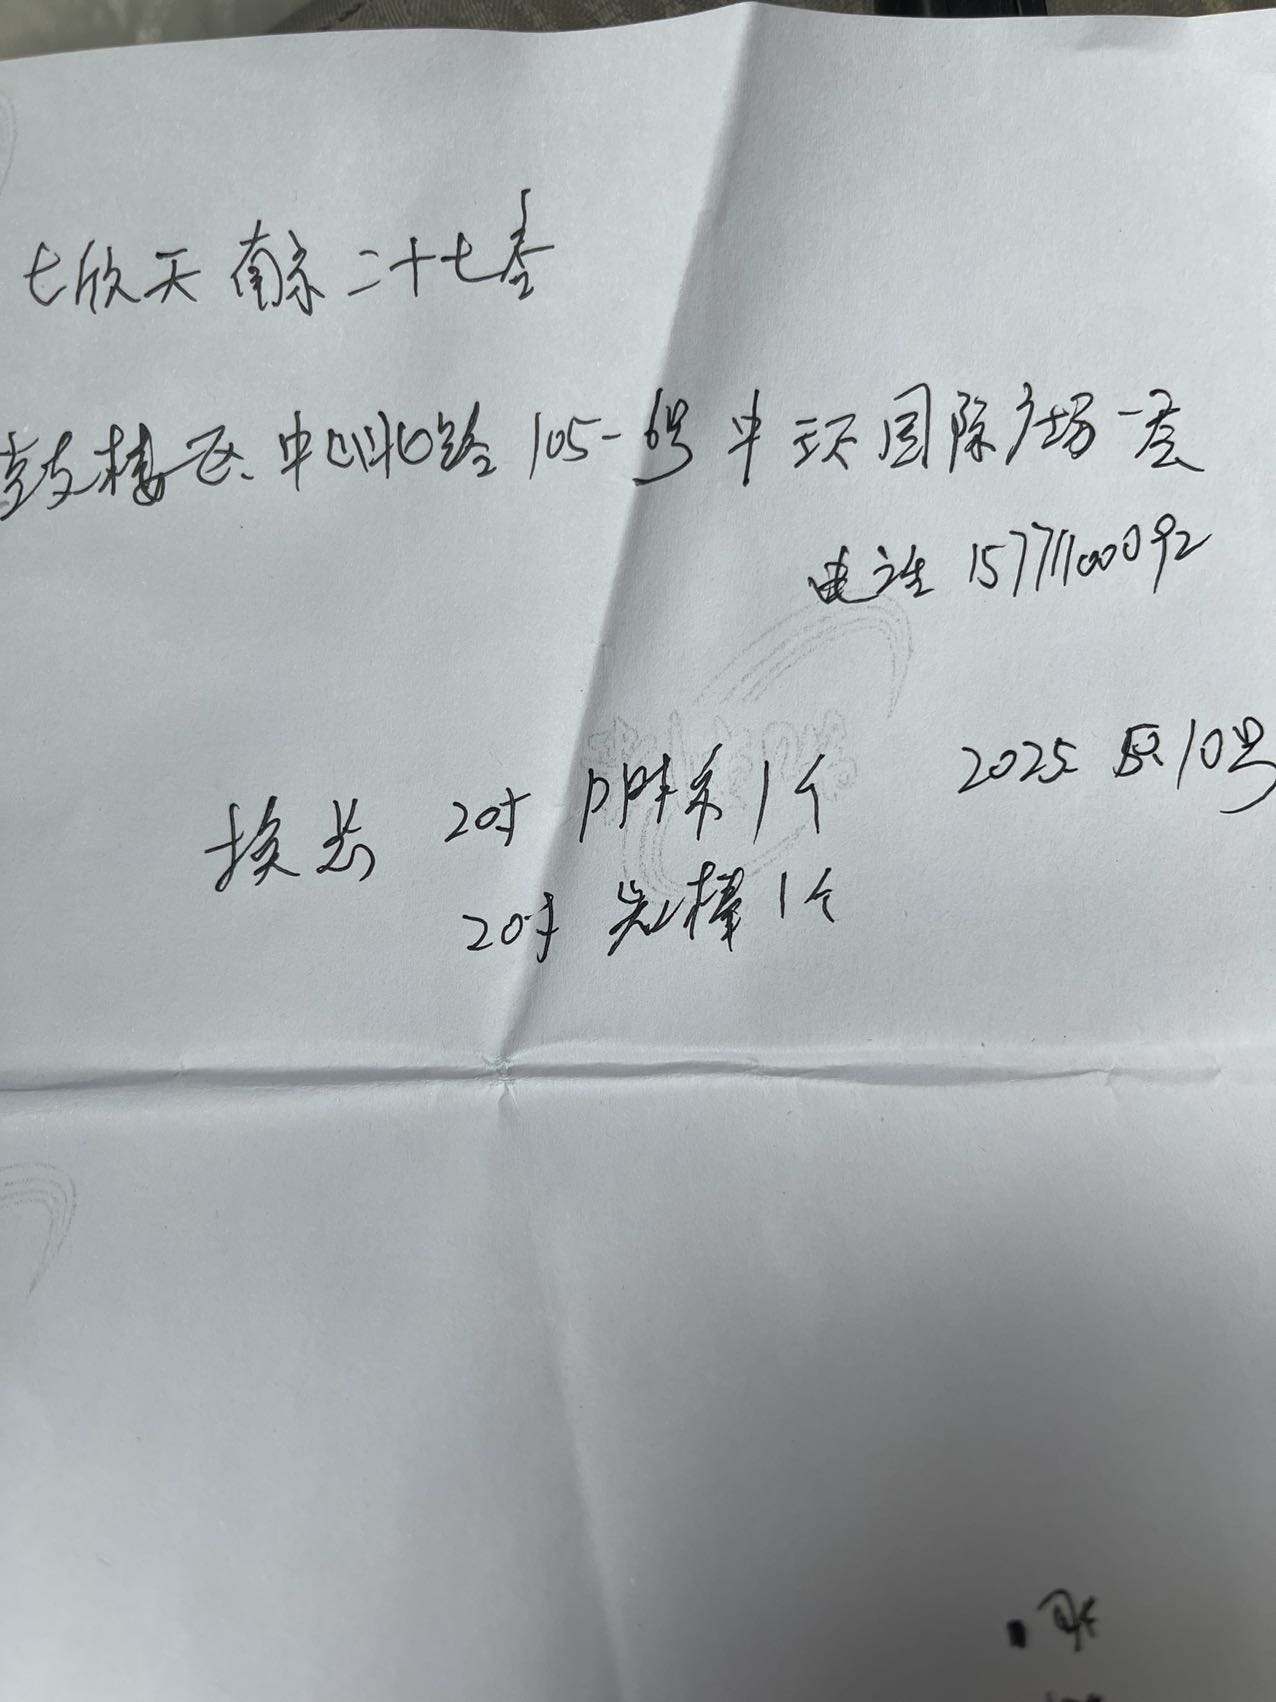 七欣天 南京二十七店
鼓楼区 中山北路 105-6号 中环国际广场一层
电话 15771100092
2025 10号
换芯 20寸 PP棉 1个
20寸 炭棒 1个